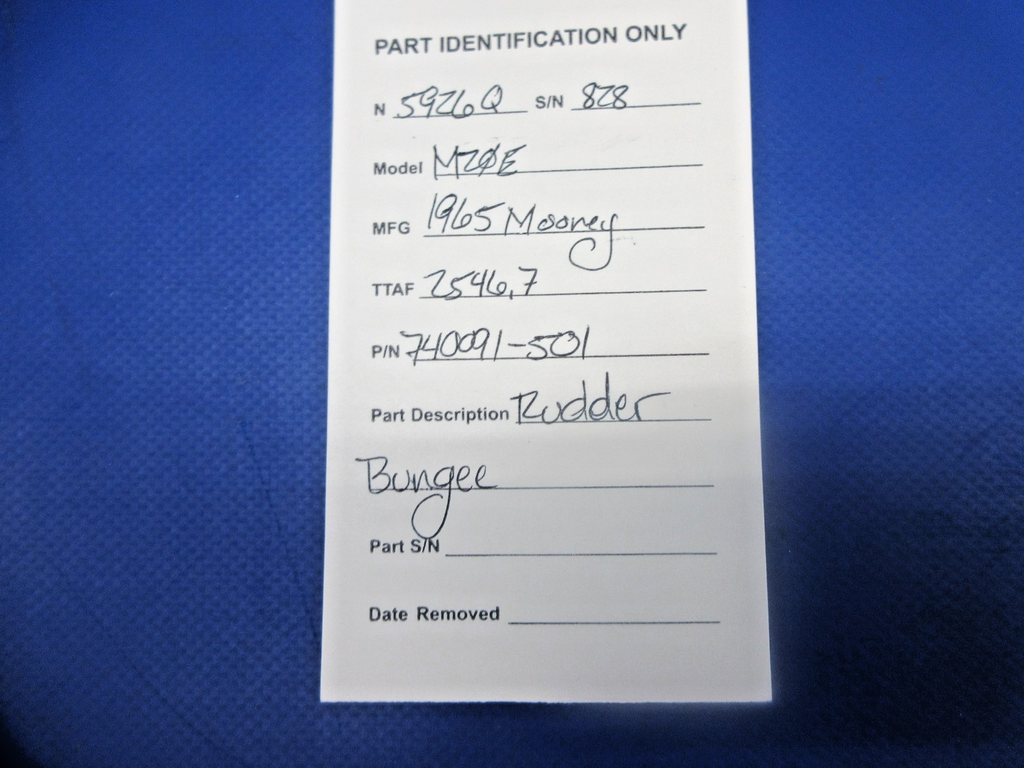 PART IDENTIFICATION ONLY
N 5926Q S/N 828
Model M20E
MFG 1965 Mooney
TTAF 2546.7
P/N 740091-501
Part Description Rudder
Bungee
Part S/N
Date Removed